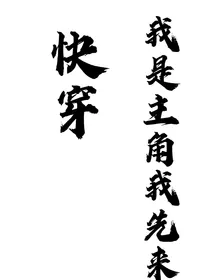 快穿
我是主角我先来